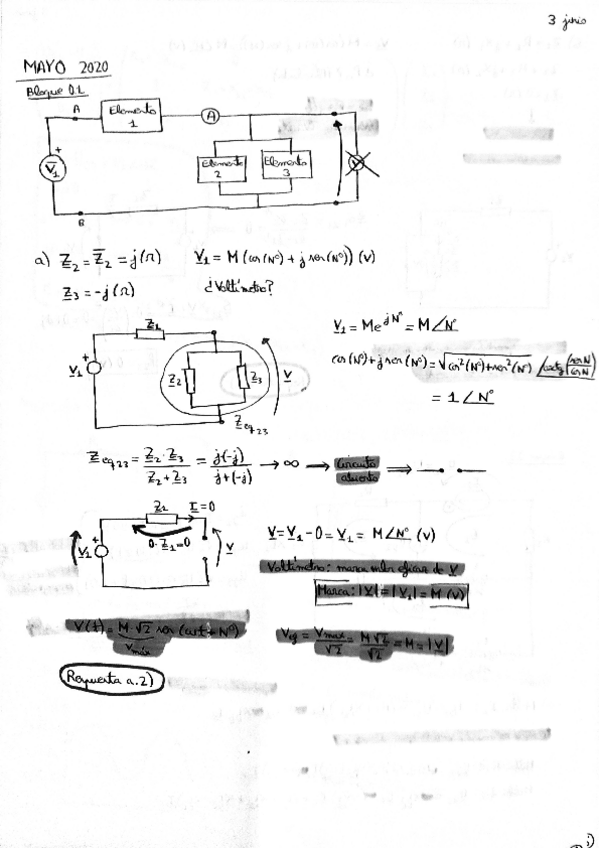 3 junio
MAYO 2020
Bloque 0.1
A
Elemento 1
A
+
V1
Elemento 2
Elemento 3
V
B
a) Z2 = Z2 = j(Ω)   V1 = M (cos(Nº) + j sen(Nº)) (V)
Z3 = -j(Ω)   ¿Voltímetro?
Z1
+
V1
Z2
Z3
V
Zeq23
V1 = Me^jNº = M∠Nº
cos(Nº) + j sen(Nº) = √cos²(Nº)+sen²(Nº) ∠arctg(senN/cosN)
= 1∠Nº
Zeq23 = Z2·Z3 / Z2+Z3 = j(-j) / j+(-j) → ∞ → Circuito abierto ⇒
Z1   I=0
+
V1
0·Z1=0
V
V = V1 - 0 = V1 = M∠Nº (V)
Voltímetro: marca valor eficaz de V
Marca: |V| = |V1| = M (V)
V(t) = M·√2 sen(ωt + Nº)
Vmáx
Vef = Vmáx/√2 = M√2/√2 = M = |V|
Respuesta a.2)